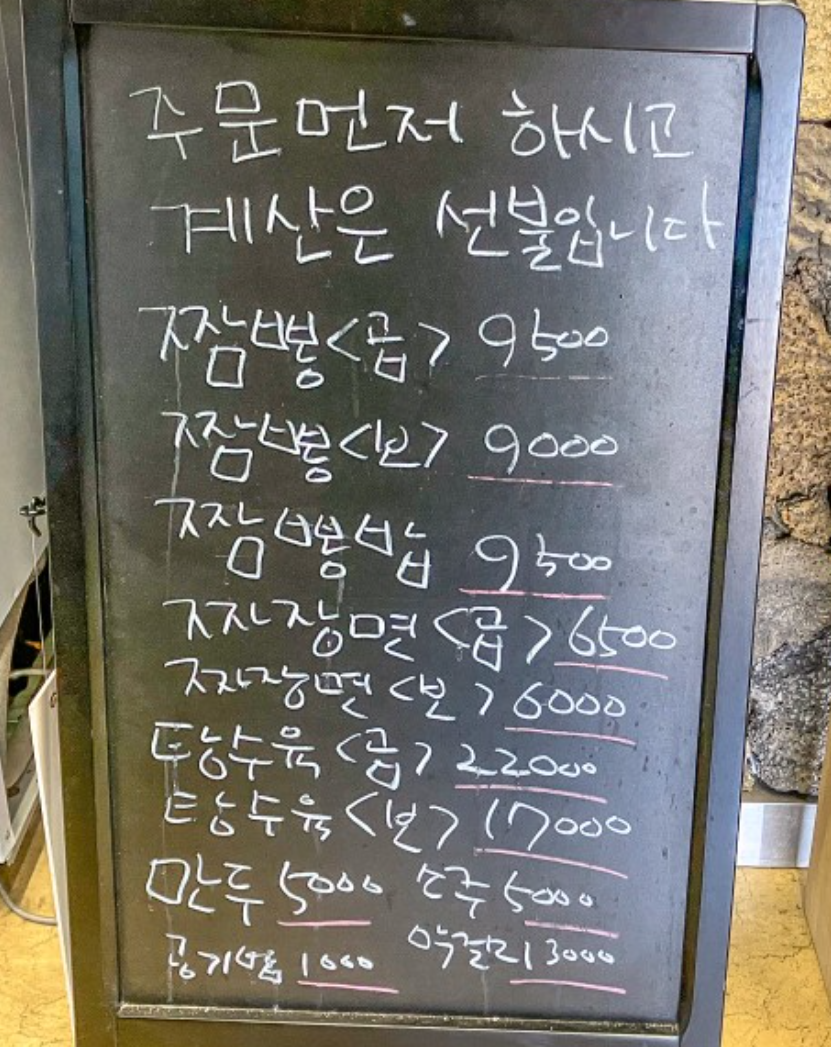 주문먼저 하시고
계산은 선불입니다
짬뽕<곱> 9500
짬뽕<보> 9000
짬뽕밥 9500
짜장면<곱> 6500
짜장면<보> 6000
탕수육<곱> 22000
탕수육<보> 17000
만두 5000 소주 5000
공기밥 1000 막걸리 3000